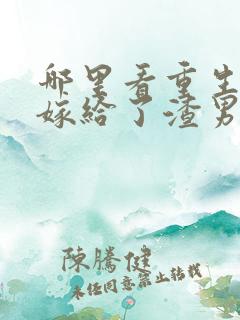 哪里看重生
嫁给了渣男
陳騰健
未经同意禁止转载